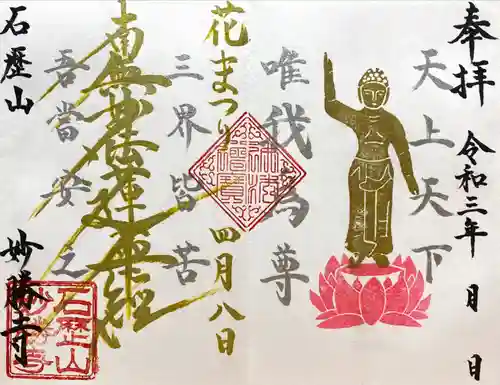 奉拝 令和三年 月 日
天上天下
唯我為尊
花まつり 四月八日
三界皆苦
南無妙法蓮華経
吾當安之
石歷山 妙勝寺
石歷山
妙勝寺